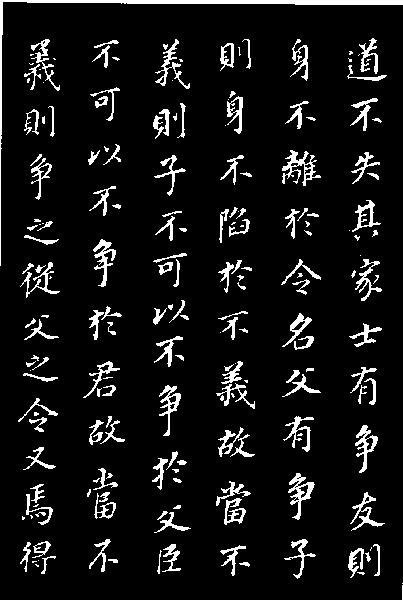 道不失其家士有争友則
身不離於令名父有争子
則身不陷於不義故當不
義則子不可以不争於父臣
不可以不争於君故當不
義則争之從父之令又焉得